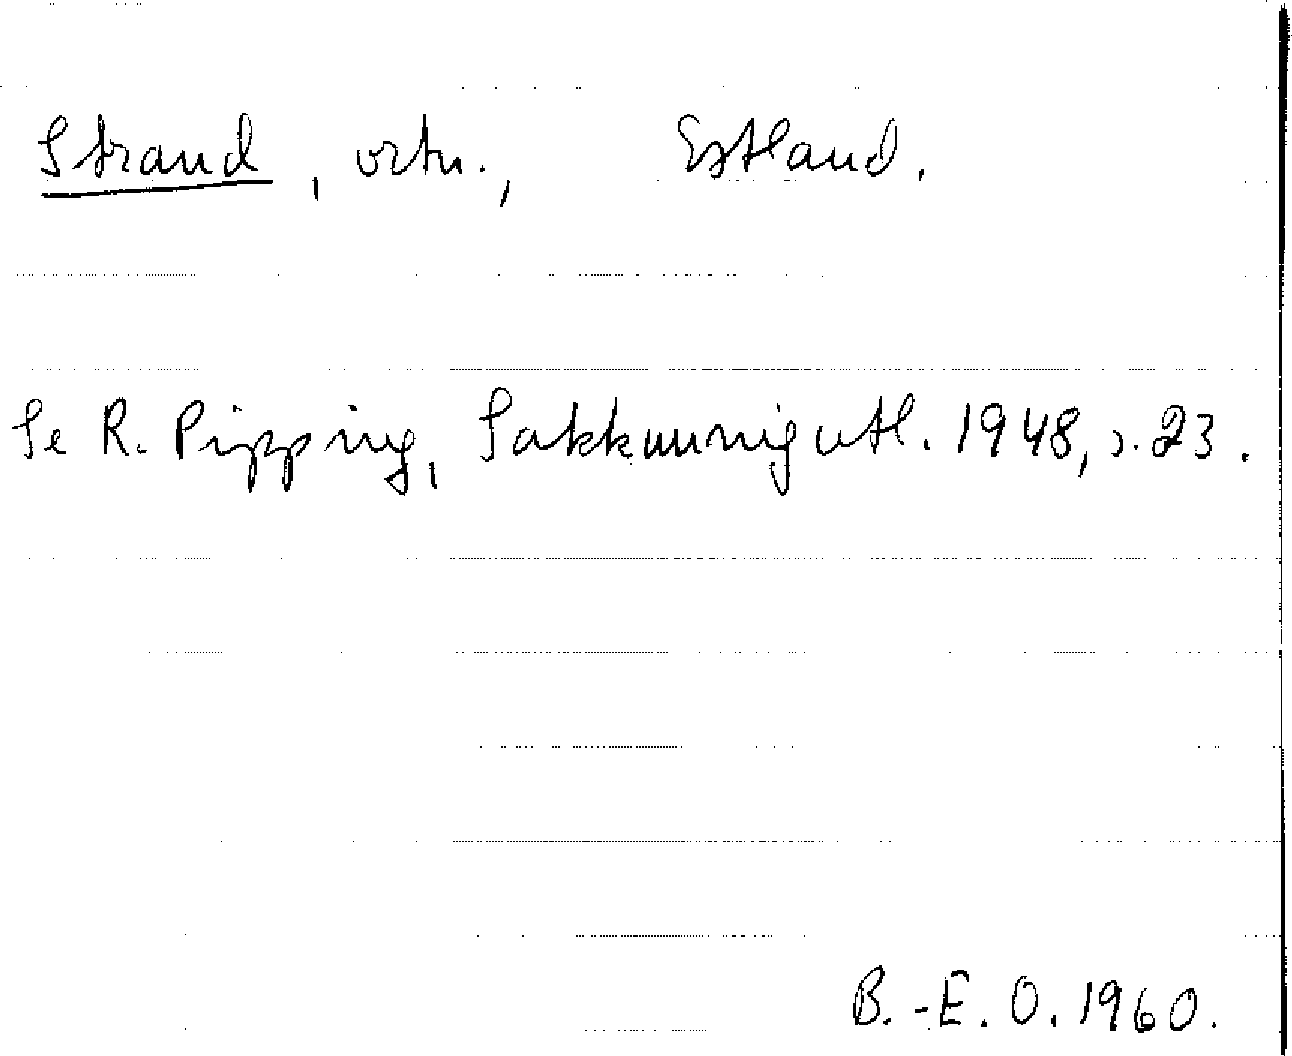 Strand, ortn., Estland.
Se R. Pipping, Sakkunnigutl. 1948, s. 23.
B.-E. O. 1960.